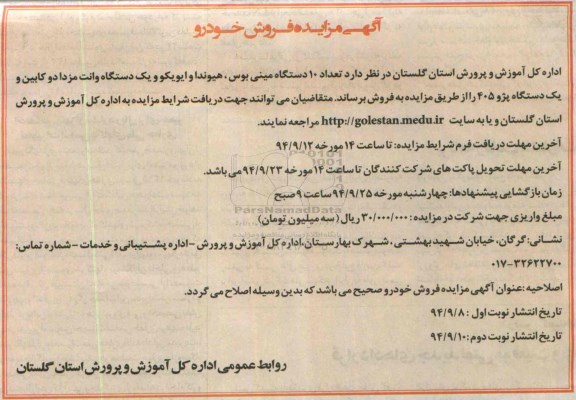 آگهی مزایده فروش خودرو
اداره کل آموزش و پرورش استان گلستان در نظر دارد تعداد ۱۰ دستگاه مینی بوس ، هیوندا و ایویکو و یک دستگاه وانت مزدا دو کابین و
یک دستگاه پژو ۴۰۵ را از طریق مزایده به فروش برساند. متقاضیان می توانند جهت دریافت شرایط مزایده به اداره کل آموزش و پرورش
استان گلستان و یا به سایت http://golestan.medu.ir مراجعه نمایند.
آخرین مهلت دریافت فرم شرایط مزایده: تا ساعت ۱۴ مورخه ۹۴/۹/۱۲
آخرین مهلت تحویل پاکت های شرکت کنندگان تا ساعت ۱۴ مورخه ۹۴/۹/۲۳ می باشد.
زمان بازگشایی پیشنهادها: چهارشنبه مورخه ۹۴/۹/۲۵ ساعت ۹ صبح
ParsNamadData
مبلغ واریزی جهت شرکت در مزایده : ۳۰/۰۰۰/۰۰۰ ریال (سه میلیون تومان)
نشانی: گرگان، خیابان شهید بهشتی، شهرک بهارستان، اداره کل آموزش و پرورش - اداره پشتیبانی و خدمات - شماره تماس:
۰۱۷-۳۲۶۲۲۷۰۰
اصلاحیه: عنوان آگهی مزایده فروش خودرو صحیح می باشد که بدین وسیله اصلاح می گردد.
تاریخ انتشار نوبت اول : ۹۴/۹/۸
تاریخ انتشار نوبت دوم: ۹۴/۹/۱۰
روابط عمومی اداره کل آموزش و پرورش استان گلستان